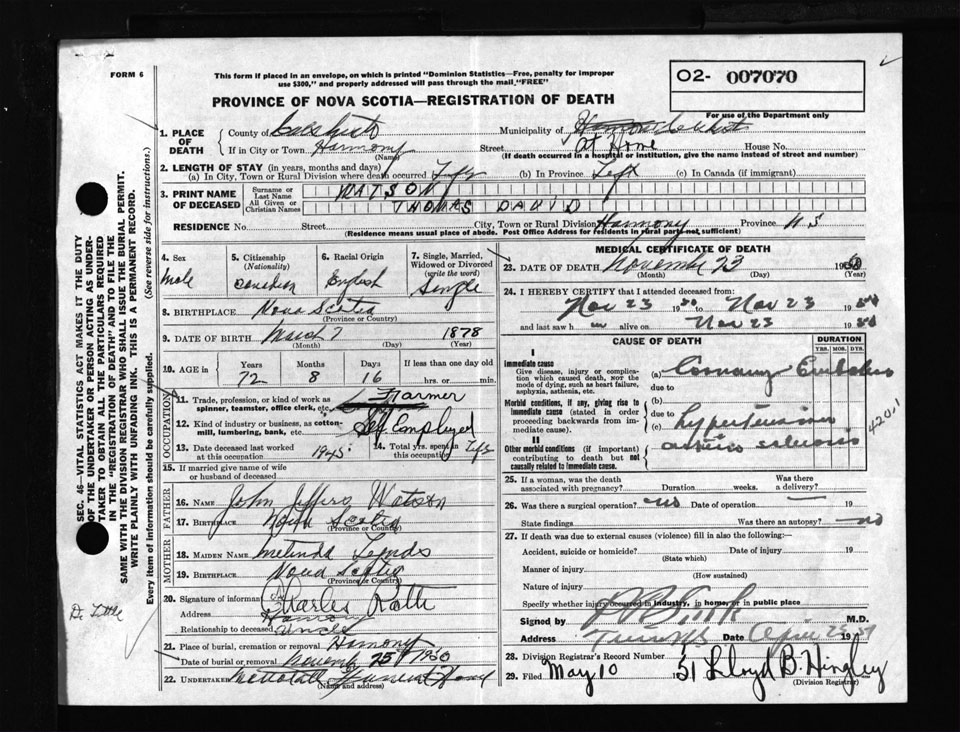 FORM 6
This form if placed in an envelope, on which is printed "Dominion Statistics—Free, penalty for improper
use $300," and properly addressed will pass through the mail "FREE"
O2- 007070
For use of the Department only
PROVINCE OF NOVA SCOTIA—REGISTRATION OF DEATH
1. PLACE OF DEATH
County of Colchester
Municipality of Colchester
If in City or Town Harmony (Name)
Street At Home House No.
(If death occurred in a hospital or institution, give the name instead of street and number)
2. LENGTH OF STAY (in years, months and days)
(a) In City, Town or Rural Division where death occurred Life (b) In Province Life (c) In Canada (if immigrant)
3. PRINT NAME OF DECEASED
Surname or Last Name WATSON
All Given or Christian Names THOMAS DAVID
RESIDENCE No. Street City, Town or Rural Division Harmony Province N S
(Residence means usual place of abode. Post Office Address for residents in rural parts not sufficient)
4. Sex
Male
5. Citizenship (Nationality)
Canadian
6. Racial Origin
English
7. Single, Married, Widowed or Divorced (write the word)
Single
8. BIRTHPLACE Nova Scotia
(Province or Country)
9. DATE OF BIRTH March 7 1878
(Month) (Day) (Year)
10. AGE in Years Months Days If less than one day old
72 8 16 hrs. or min.
OCCUPATION
11. Trade, profession, or kind of work as spinner, teamster, office clerk, etc. Farmer
12. Kind of industry or business, as cotton-mill, lumbering, bank, etc. Self Employed
13. Date deceased last worked at this occupation 1945
14. Total yrs. spent in this occupation Life
15. If married give name of wife or husband of deceased
FATHER
16. NAME John Watson
17. BIRTHPLACE Nova Scotia
(Province or Country)
MOTHER
18. MAIDEN NAME Melinda
19. BIRTHPLACE Nova Scotia
(Province or Country)
20. Signature of informant Charles
Address Harmony
Relationship to deceased Uncle
21. Place of burial, cremation or removal Harmony
Date of burial or removal November 25 1950
22. UNDERTAKER Funeral Home
(Name and address)
MEDICAL CERTIFICATE OF DEATH
23. DATE OF DEATH November 23 19
(Month) (Day) (Year)
24. I HEREBY CERTIFY that I attended deceased from:
Nov 23 1950 to Nov 23 1950
and last saw h im alive on Nov 23 1950
CAUSE OF DEATH
DURATION
YRS. MOS. DYS.
I
Immediate cause
Give disease, injury or complication which caused death, NOT the mode of dying, such as heart failure, asphyxia, asthenia, etc.
(a) Coronary Embolus
due to
Morbid conditions, if any, giving rise to immediate cause (stated in order proceeding backwards from immediate cause).
(b)
due to
(c) Hypertension
II
Other morbid conditions (if important) contributing to death but not causally related to immediate cause.
arterio sclerosis
4201
25. If a woman, was the death associated with pregnancy? Duration weeks. Was there a delivery?
26. Was there a surgical operation? no Date of operation 19
State findings Was there an autopsy? no
27. If death was due to external causes (violence) fill in also the following:
Accident, suicide or homicide? Date of injury 19
(State which)
Manner of injury
(How sustained)
Nature of injury
Specify whether injury occurred in industry, in home, or in public place
Signed by M.D.
Address Truro NS Date April 19 51
28. Division Registrar's Record Number
29. Filed May 10 19 51 Lloyd B. Hingley
(Division Registrar)
SEC. 46—VITAL STATISTICS ACT MAKES IT THE DUTY
OF THE UNDERTAKER OR PERSON ACTING AS UNDER-
TAKER TO OBTAIN ALL THE PARTICULARS REQUIRED
IN THE "REGISTRATION OF DEATH" AND TO FILE THE
SAME WITH THE DIVISION REGISTRAR WHO SHALL ISSUE THE BURIAL PERMIT.
WRITE PLAINLY WITH UNFADING INK. THIS IS A PERMANENT RECORD.
Every item of information should be carefully supplied. (See reverse side for instructions.)